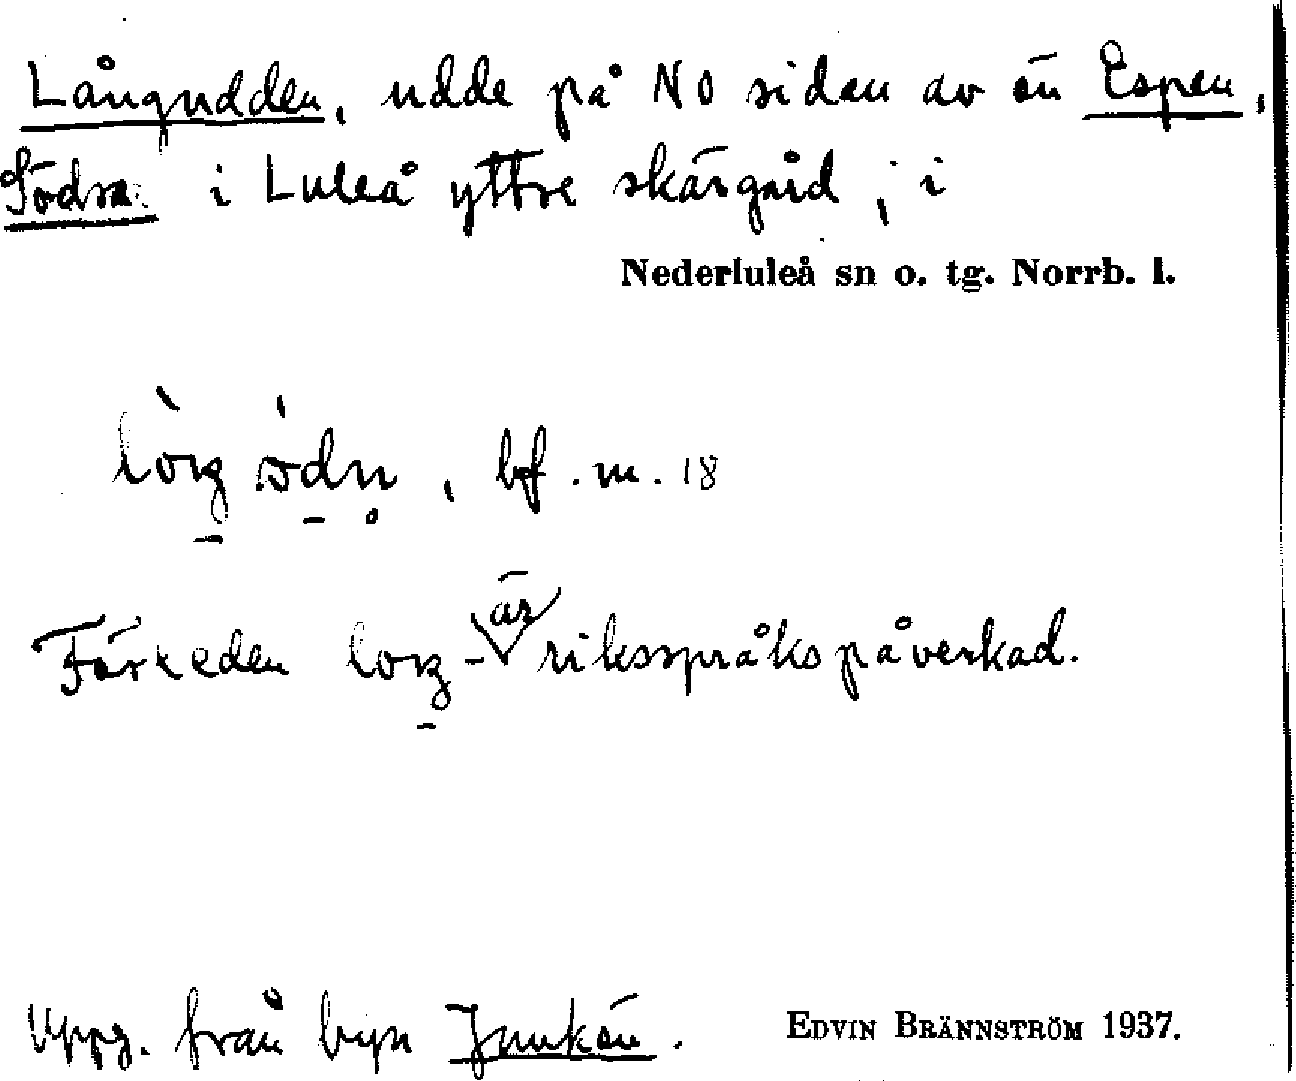 Långudden, udde på NO sidan av ön Espen,
Södra i Luleå yttre skärgård, i
Nederluleå sn o. tg. Norrb. l.
, bf. m. 18
Förleden är riksspråkspåverkad.
Uppg. från byn Junkön.
EDVIN BRÄNNSTRÖM 1937.